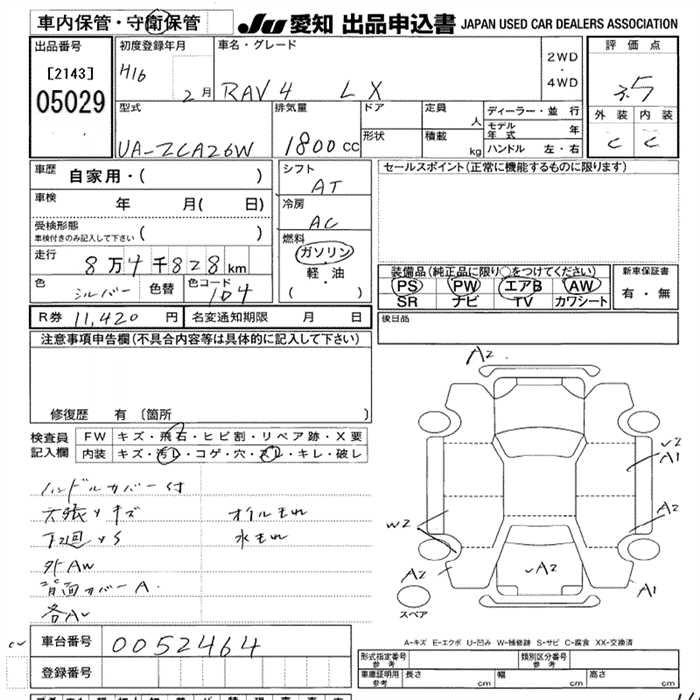 車内保管・守衛保管
JU 愛知 出品申込書 JAPAN USED CAR DEALERS ASSOCIATION
出品番号
[2143]
05029
初度登録年月
H16 2月
車名・グレード
RAV4 LX
2WD
・
4WD
評価点
3.5
外装 内装
C C
型式
UA-ZCA26W
排気量
1800cc
ドア
形状
定員
人
積載
kg
ディーラー・並行
モデル年式 年
ハンドル 左・右
車歴 自家用・( )
車検 年 月( 日)
受検形態
車検付きのみ記入して下さい ( )
走行
8万4千828km
色 シルバー 色替 色コード 1C4
シフト
AT
冷房
AC
燃料
ガソリン
・
軽・油
( )
セールスポイント(正常に機能するものに限ります)
装備品(純正品に限り○をつけてください)
PS PW エアB AW
SR ナビ TV カワシート
新車保証書
有・無
R券 11,420円 名変通知期限 月 日
後日品
注意事項申告欄(不具合内容等は具体的に記入して下さい)
修復歴 有〔箇所 〕
検査員
記入欄
FW キズ・飛石・ヒビ割・リペア跡・X要
内装 キズ・汚レ・コゲ・穴・スレ・キレ・破レ
ハンドルカバー付
天張ヨゴレ キズ オイルモレ
下廻りS 水モレ
外AW
背面カバーA
各A
A2
W2
A2
A2
A1
A2
A1
スペア
A-キズ E-エクボ U-凹み W-補修跡 S-サビ C-腐食 XX-交換済
車台番号 0052464
登録番号
形式指定番号
参考
類別区分番号
参考
車庫証明用
参考
長さ cm 幅 cm 高さ cm